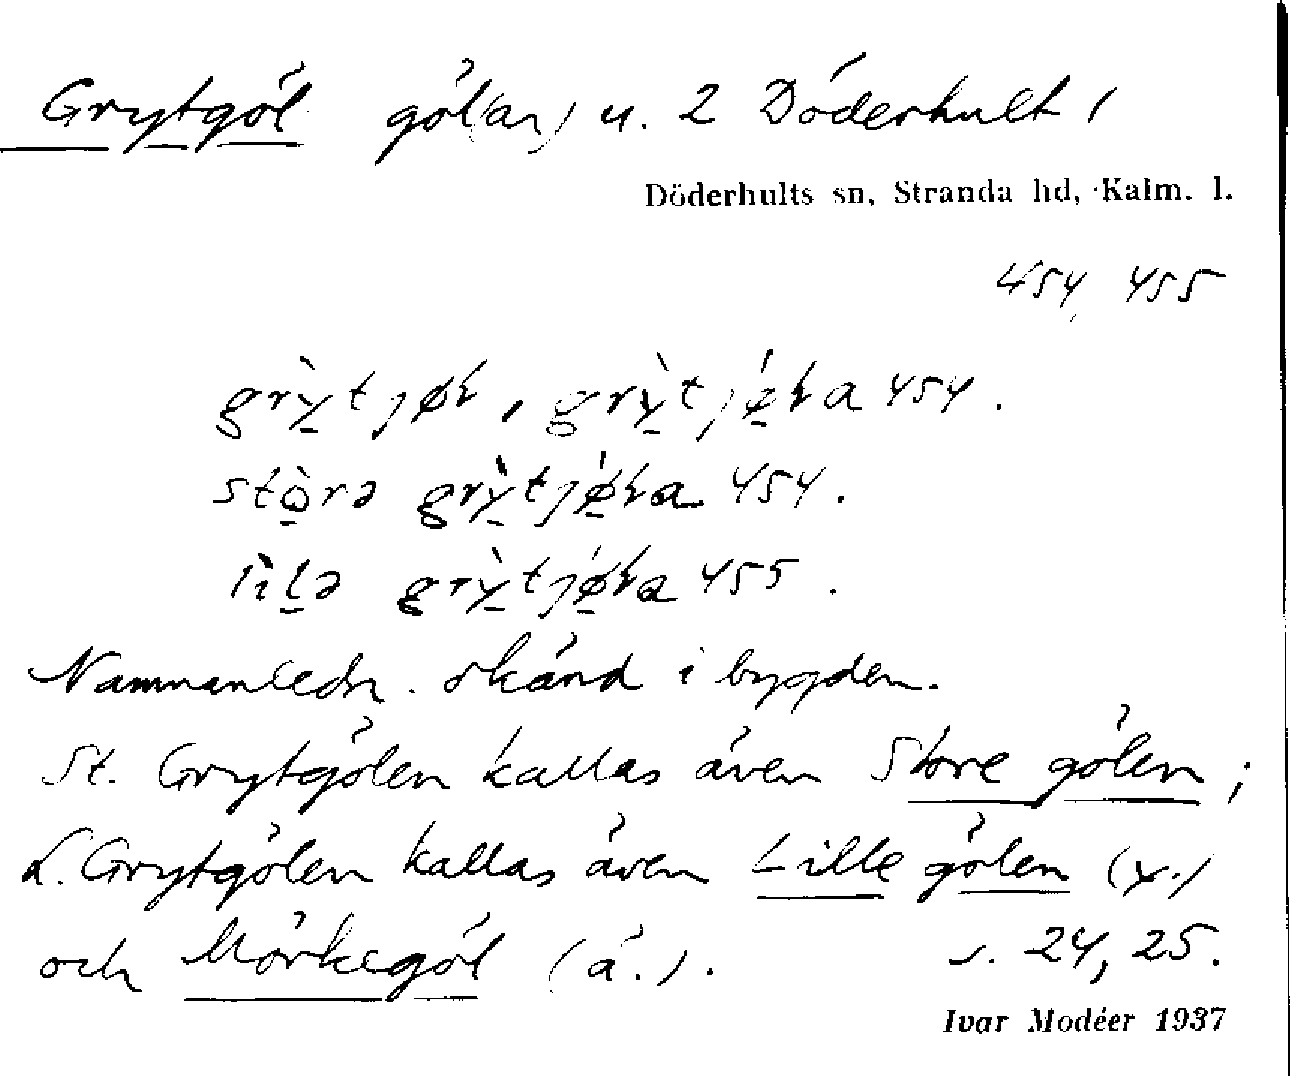 Grytgöl göl(ar) u. 2 Döderhult 1
Döderhults sn, Stranda hd, Kalm. l.
454, 455
454.
454.
455.
Namnanledn. okänd i bygden.
St. Grytgölen kallas även Store gölen;
L. Grytgölen kallas även Lille gölen (y.)
och Mörkegöl (ä.). s. 24, 25.
Ivar Modéer 1937